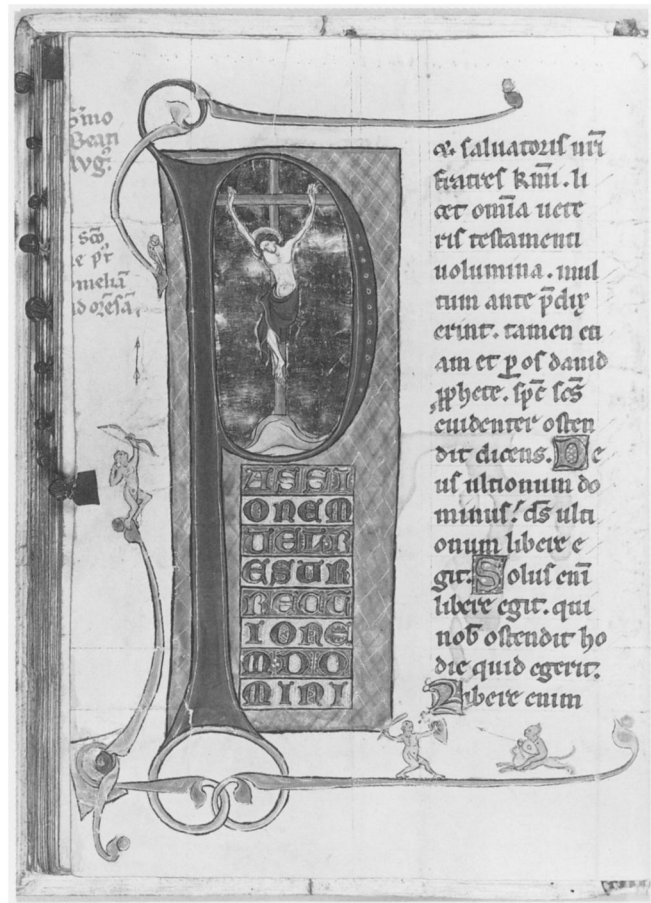 Beati
Aug.
P
ASSI
ONEM
VEL R
ESUR
RECC
IONE
M DO
MINI
saluatoris nr̄i
fratres km̄i. li
cet om̄ia uete
ris testamenti
uolumina. mul
tum ante p̄dix
erint. tamen eti
am et ꝑ os dauid
ꝓphete. sp̄c sc̄s
euidenter osten
dit dicens. De
us ultionum do
minus! d̄s ulti
onum libere e
git. Solus eni̅
libere egit. qui
nob̅ ostendit ho
die quid egerit.
Libere enim